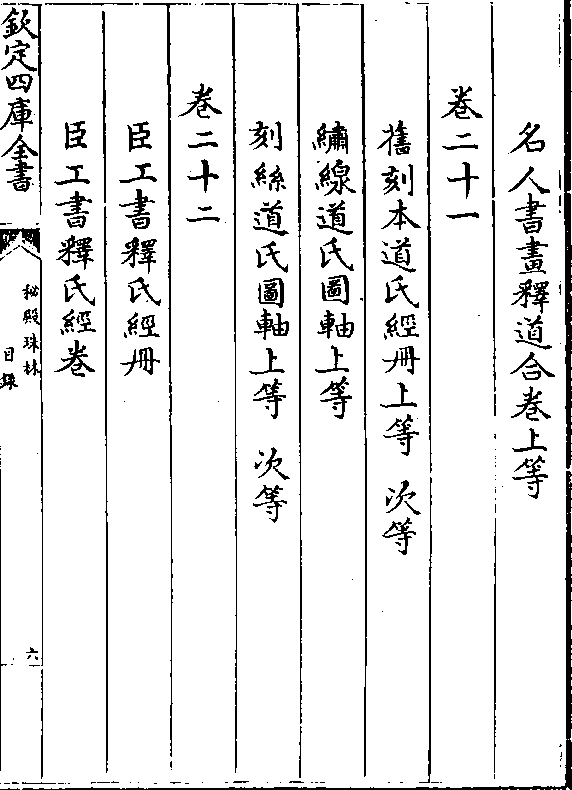 名人書畫釋道合卷上等
卷二十一
舊刻本道氏經冊上等　次等
繡線道氏圖軸上等
刻絲道氏圖軸上等　次等
卷二十二
臣工書釋氏經冊
臣工書釋氏經卷
欽定四庫全書
秘殿珠林
目錄
六